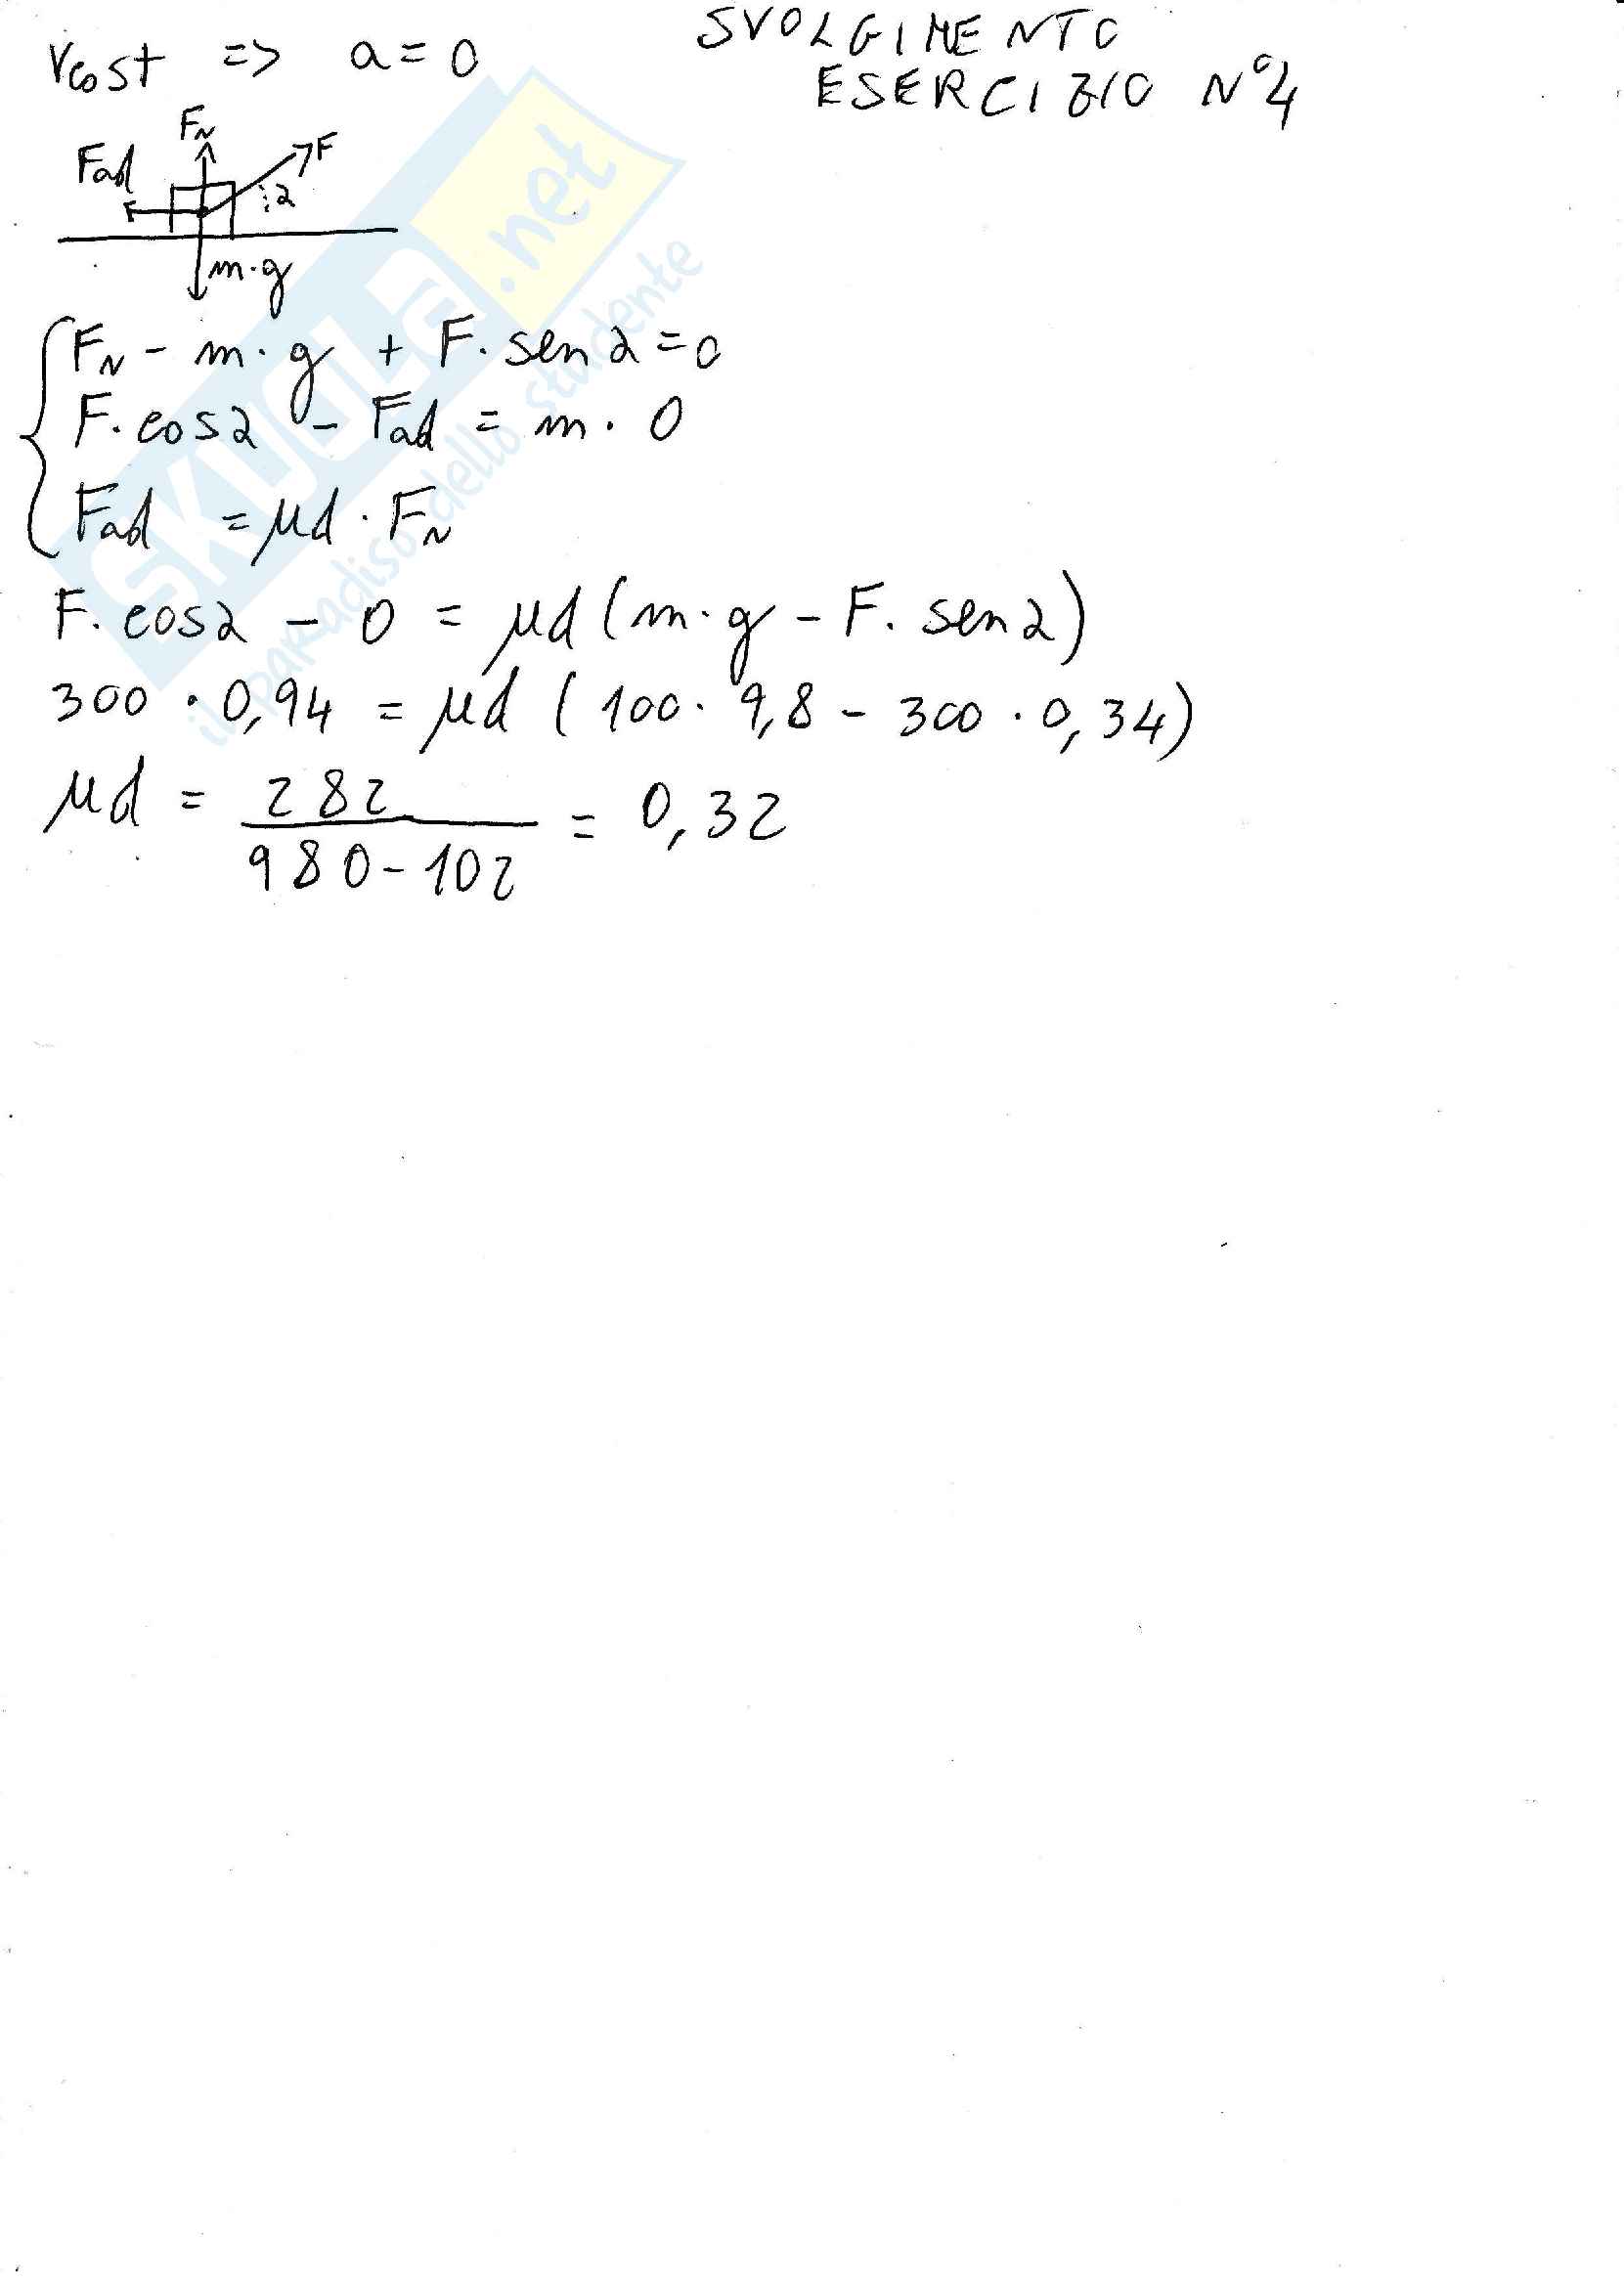 SVOLGIMENTO
ESERCIZIO N°4
vcost => a = 0
FN
Fad
F
α
m·g
FN - m·g + F·sen α = 0
F·cos α - Fad = m·0
Fad = μd·FN
F·cos α - 0 = μd(m·g - F·sen α)
300·0,94 = μd(100·9,8 - 300·0,34)
μd = 282 / 980-102 = 0,32
SKUOLA.net
il paradiso dello studente